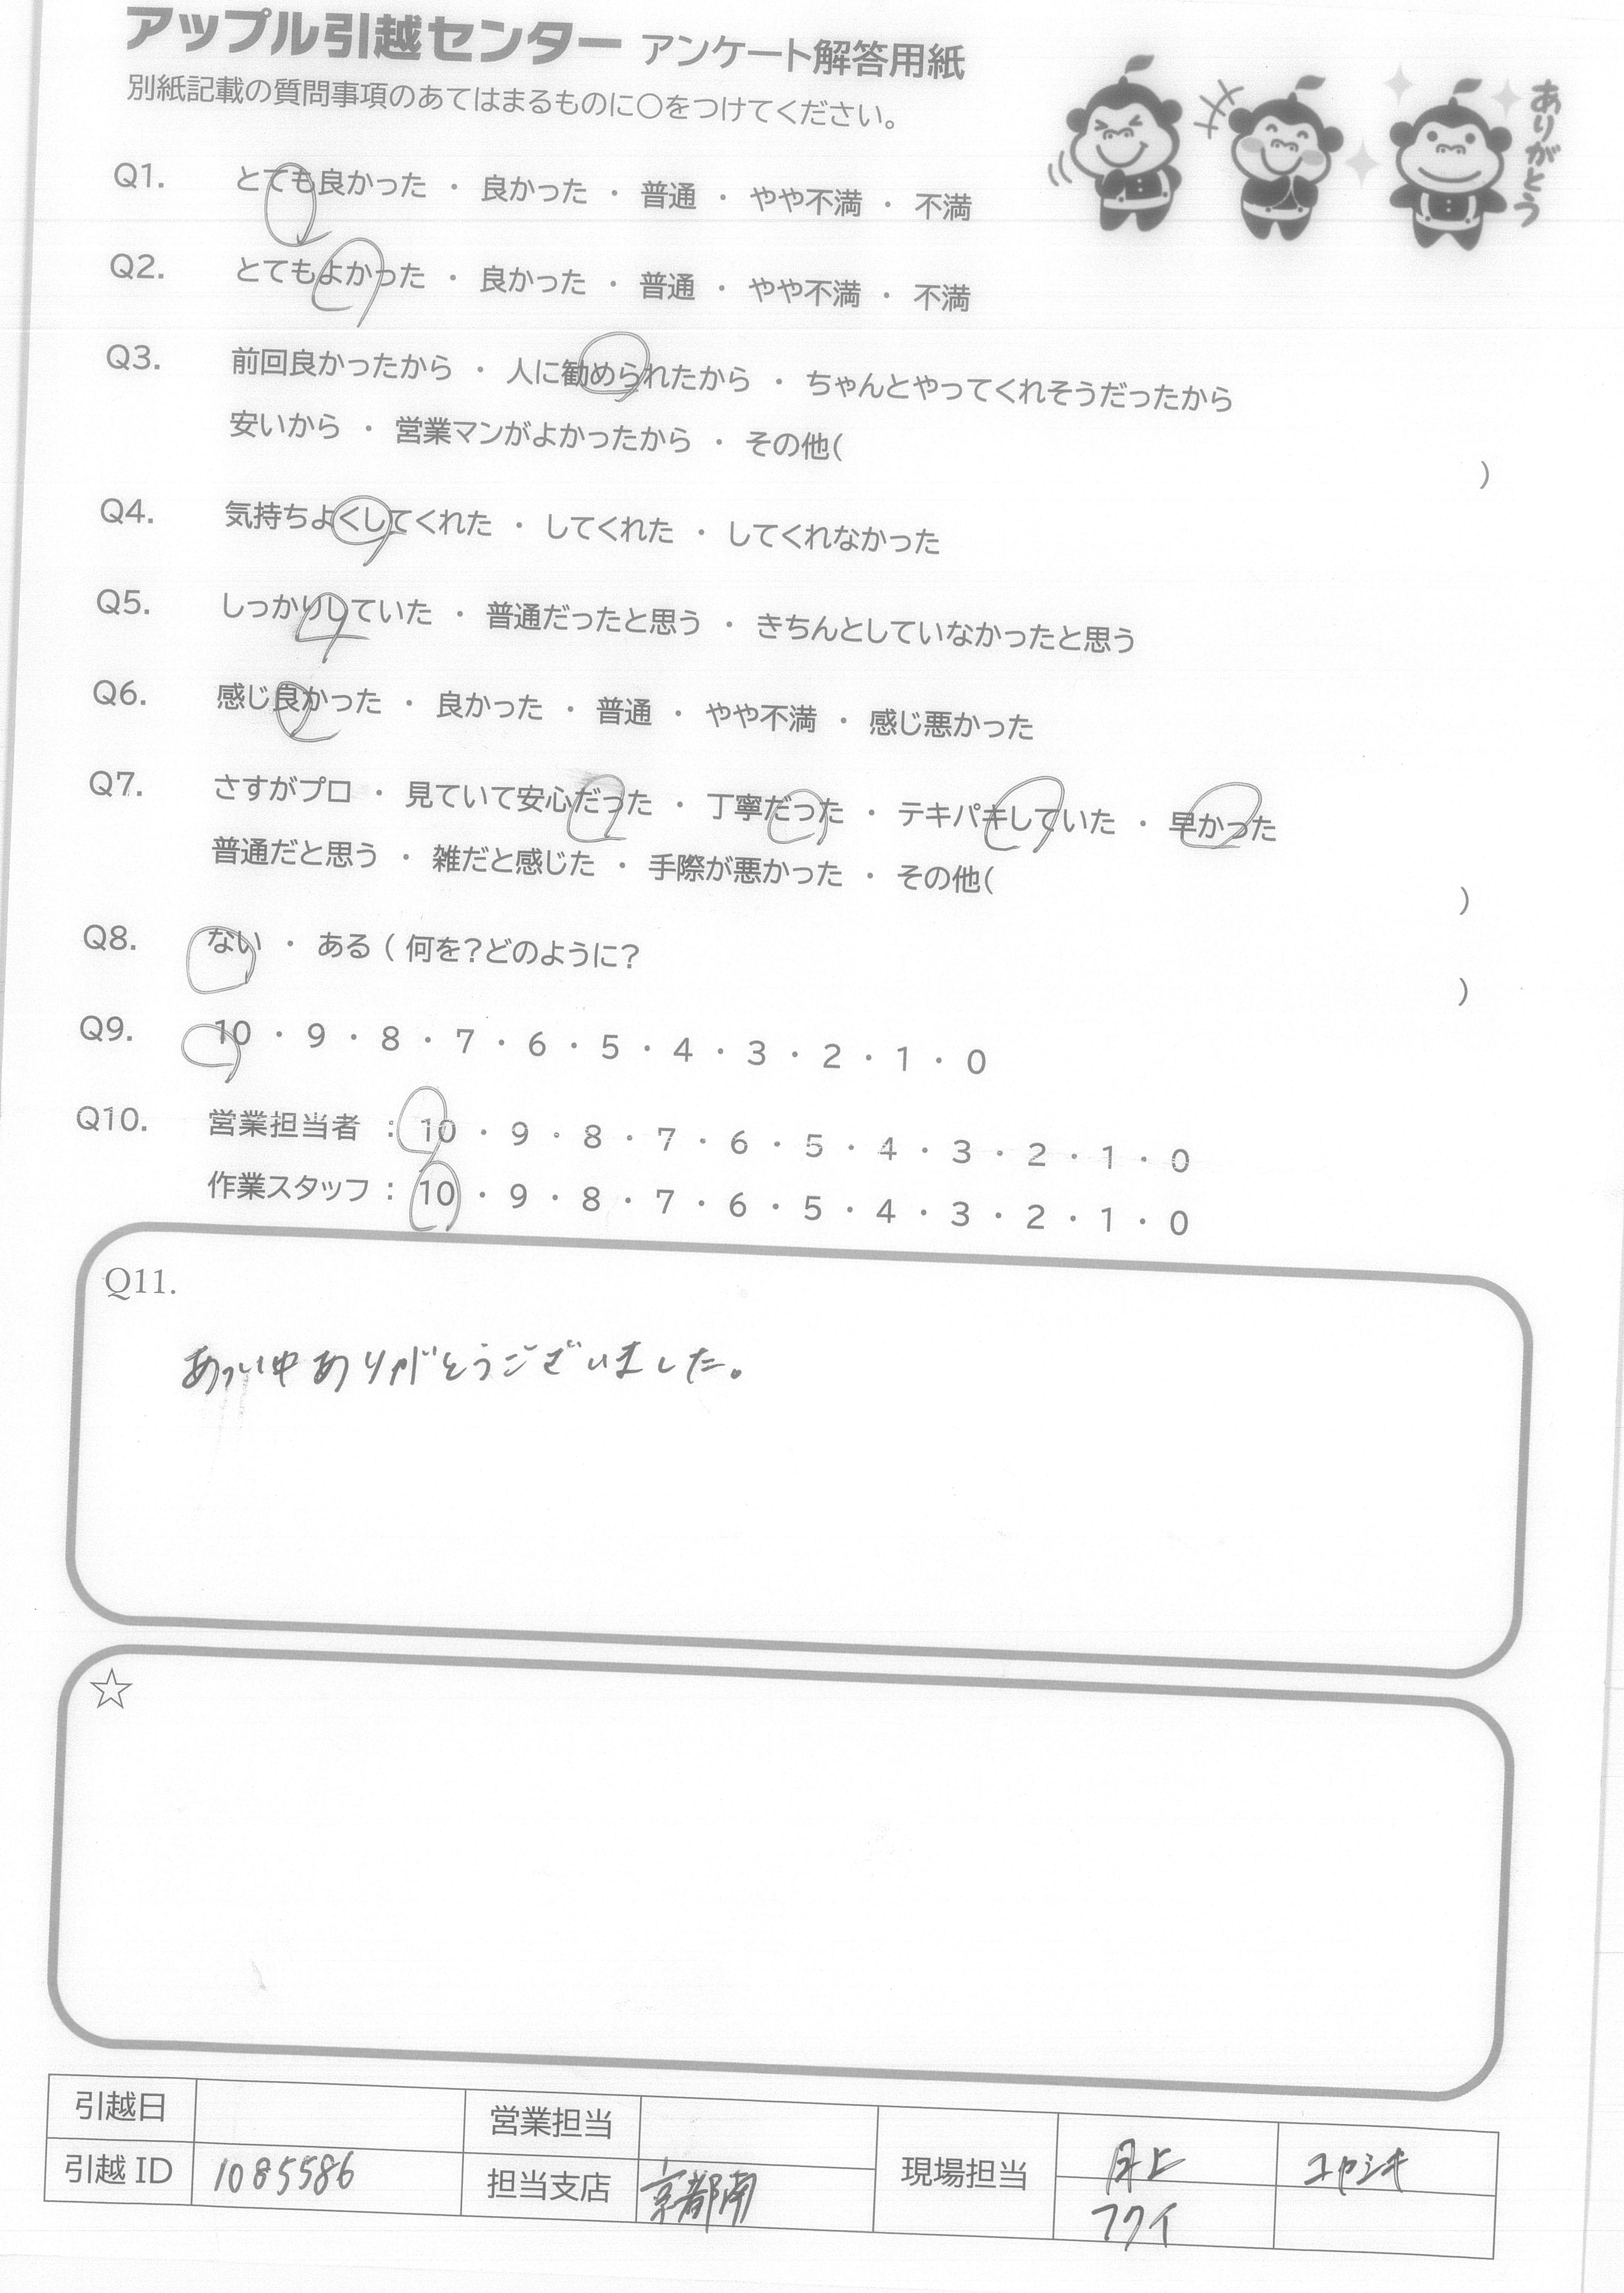 アップル引越センター アンケート解答用紙
別紙記載の質問事項のあてはまるものに〇をつけてください。
ありがとう
Q1. とても良かった ・ 良かった ・ 普通 ・ やや不満 ・ 不満
Q2. とてもよかった ・ 良かった ・ 普通 ・ やや不満 ・ 不満
Q3. 前回良かったから ・ 人に勧められたから ・ ちゃんとやってくれそうだったから
安いから ・ 営業マンがよかったから ・ その他( )
Q4. 気持ちよくしてくれた ・ してくれた ・ してくれなかった
Q5. しっかりしていた ・ 普通だったと思う ・ きちんとしていなかったと思う
Q6. 感じ良かった ・ 良かった ・ 普通 ・ やや不満 ・ 感じ悪かった
Q7. さすがプロ ・ 見ていて安心だった ・ 丁寧だった ・ テキパキしていた ・ 早かった
普通だと思う ・ 雑だと感じた ・ 手際が悪かった ・ その他( )
Q8. ない ・ ある ( 何を?どのように? )
Q9. 10 ・ 9 ・ 8 ・ 7 ・ 6 ・ 5 ・ 4 ・ 3 ・ 2 ・ 1 ・ 0
Q10. 営業担当者 : 10 ・ 9 ・ 8 ・ 7 ・ 6 ・ 5 ・ 4 ・ 3 ・ 2 ・ 1 ・ 0
作業スタッフ : 10 ・ 9 ・ 8 ・ 7 ・ 6 ・ 5 ・ 4 ・ 3 ・ 2 ・ 1 ・ 0
Q11.
あつい中ありがとうございました。
☆
引越日 営業担当
引越 ID 1085586 担当支店 京都南 現場担当
コヤシキ
フクイ